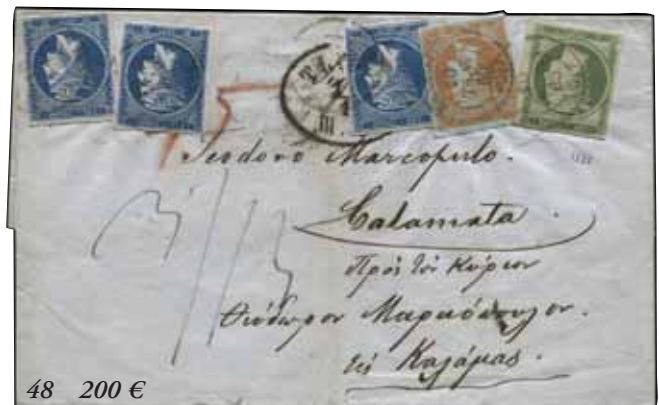 Teodoro Marcopulo.
Calamata.
Πρὸς τὸν Κύριον
Θεόδωρον Μαρκόπουλον.
εἰς Καλάμας.
48 200 €